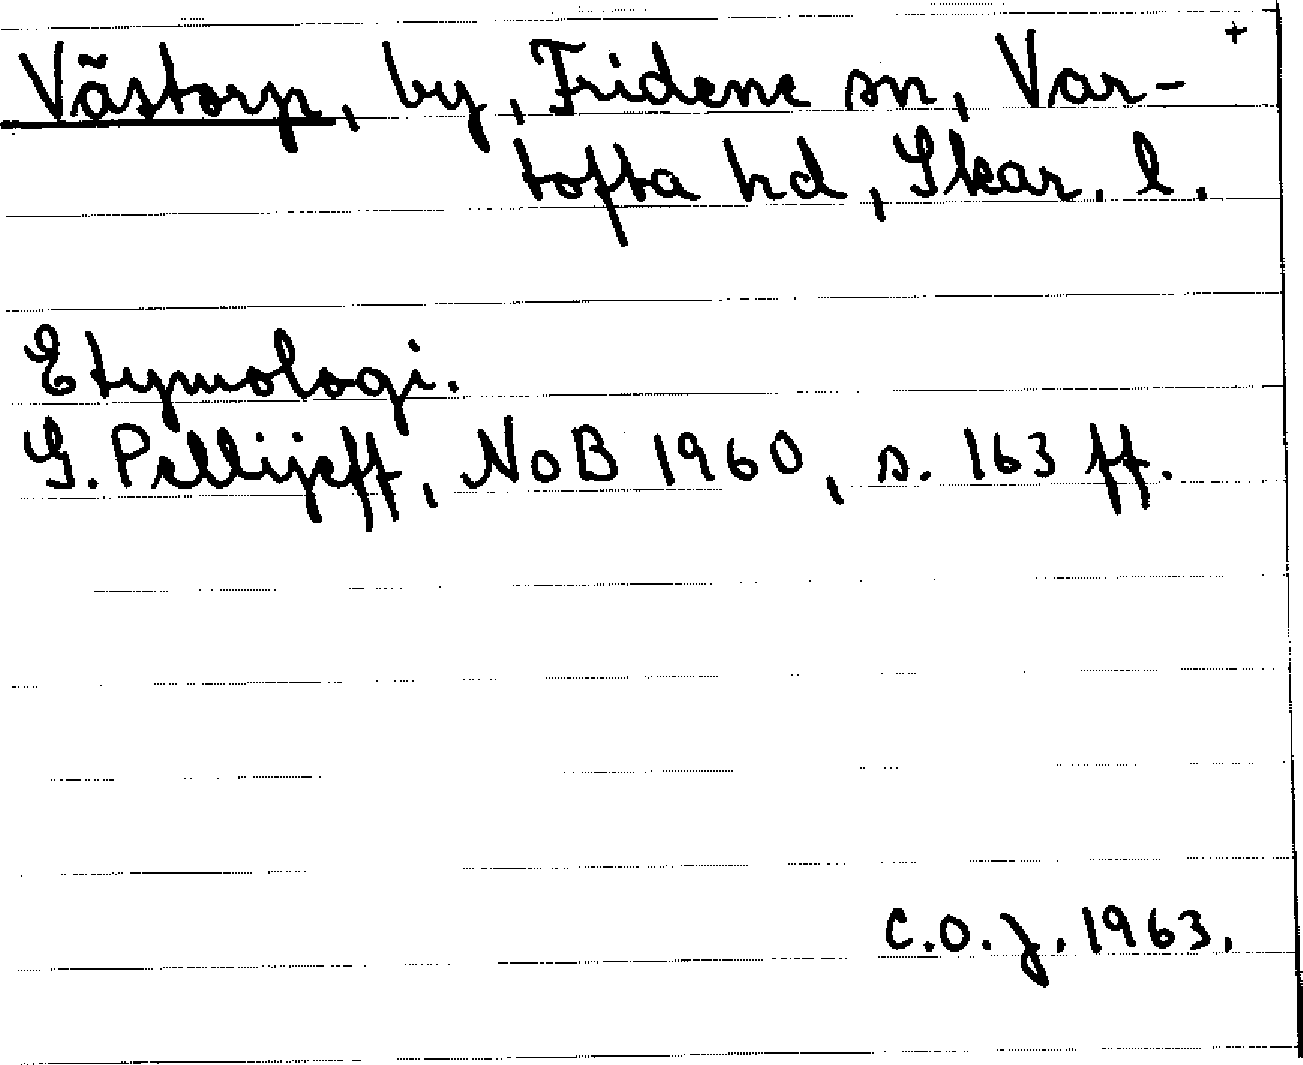 +
Västorp, by, Fridene sn, Var-
tofta hd, Skar. l.
Etymologi.
G. Pellijeff, NoB 1960, s. 163 ff.
C.O.J. 1963.